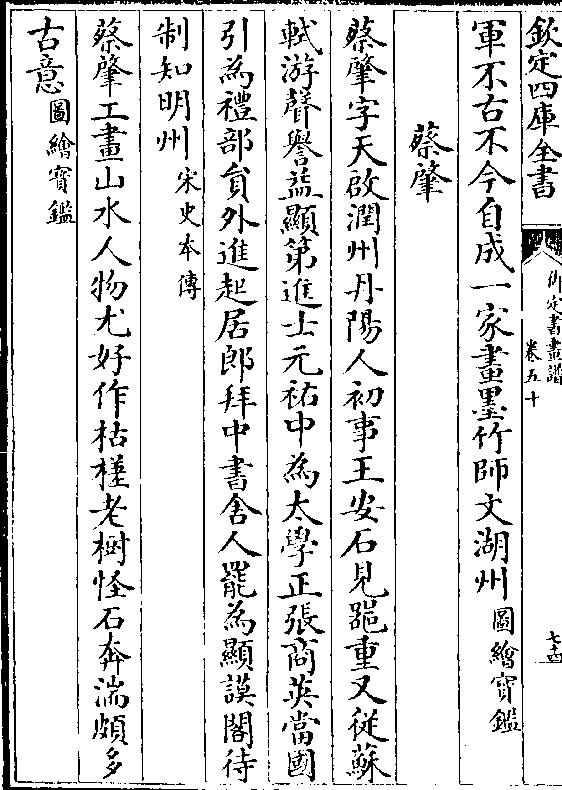 欽定四庫全書
御定書畫譜
卷五十
軍不古不今自成一家畫墨竹師文湖州圖繪寳鑑
蔡肇
蔡肇字天啟潤州丹陽人初事王安石見噐重又從蘇
軾游聲譽益顯第進士元祐中為太學正張商英當國
引為禮部貟外進起居郎拜中書舍人罷為顯謨閣待
制知明州宋史本傳
蔡肇工畫山水人物尤好作枯槎老樹怪石奔湍頗多
古意圖繪寳鑑